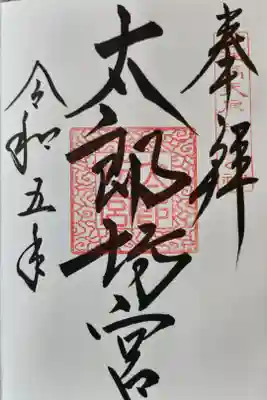 奉拝
太郎坊宮
令和五年